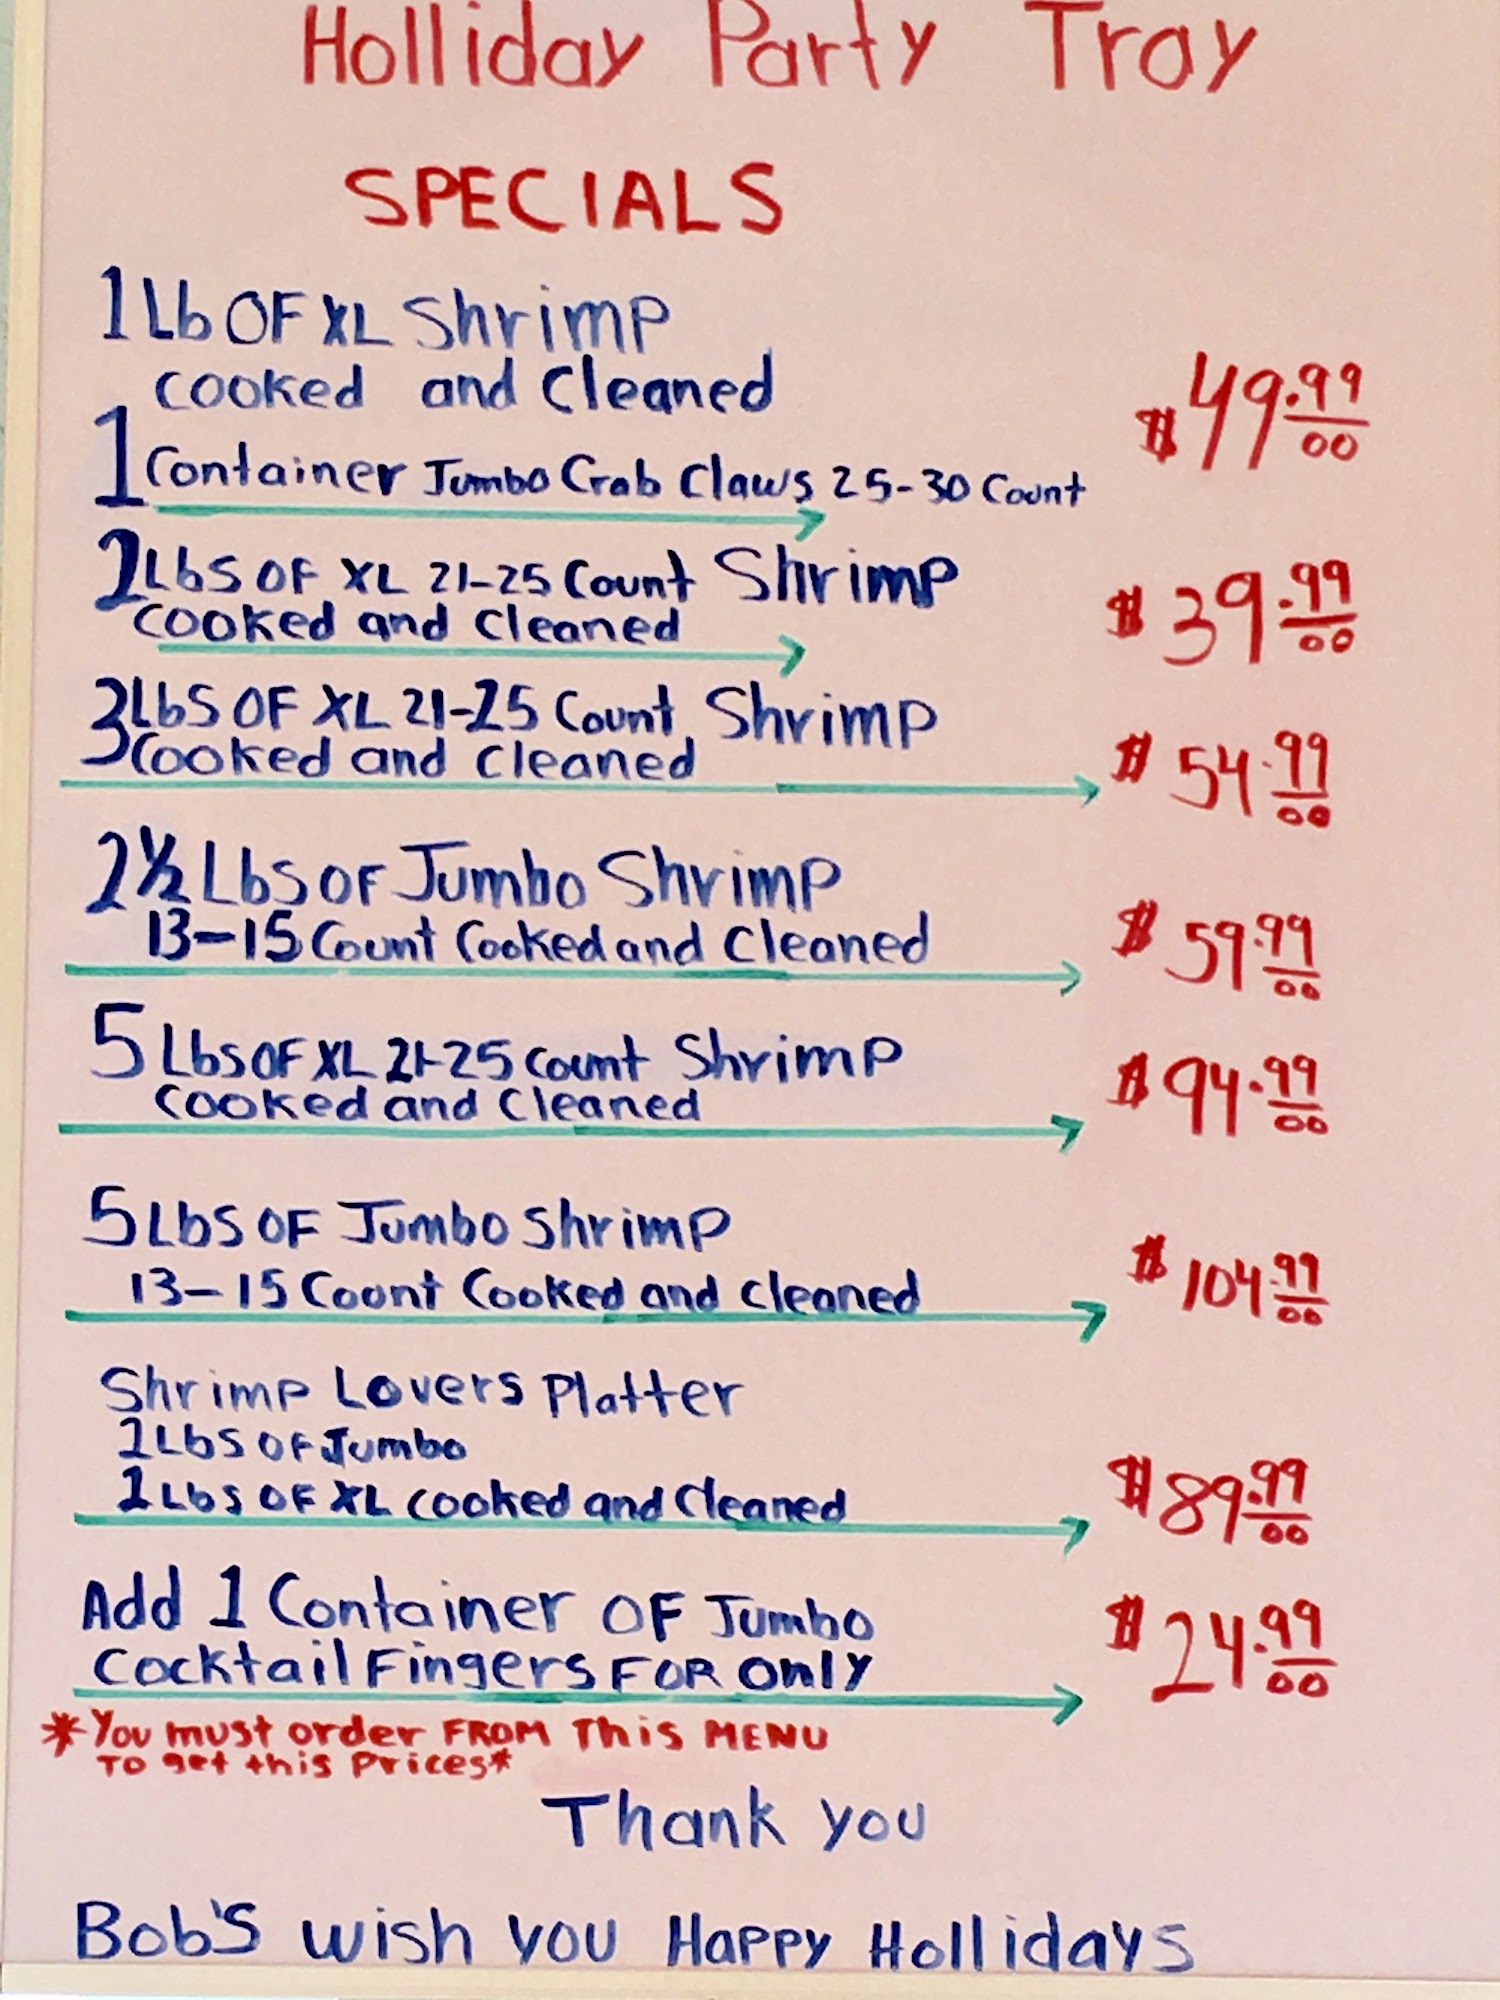 Holliday Party Tray
SPECIALS
1 Lb OF XL Shrimp
cooked and Cleaned
$49.99/00
1 Container Jumbo Crab Claws 25-30 Count
2 Lbs OF XL 21-25 Count Shrimp
cooked and Cleaned
$39.99/00
3 Lbs OF XL 21-25 Count Shrimp
Cooked and Cleaned
$54.99/00
2 ½ Lbs OF Jumbo Shrimp
13-15 Count Cooked and Cleaned
$59.99/00
5 Lbs OF XL 21-25 Count Shrimp
Cooked and Cleaned
$94.99/00
5 Lbs OF Jumbo Shrimp
13-15 Count Cooked and Cleaned
$104.99/00
Shrimp Lovers Platter
2 Lbs OF Jumbo
2 Lbs OF XL cooked and Cleaned
$89.99/00
Add 1 Container OF Jumbo
Cocktail Fingers FOR Only
$24.99/00
*You must order FROM This MENU
To get this Prices*
Thank you
Bob's wish you Happy Hollidays